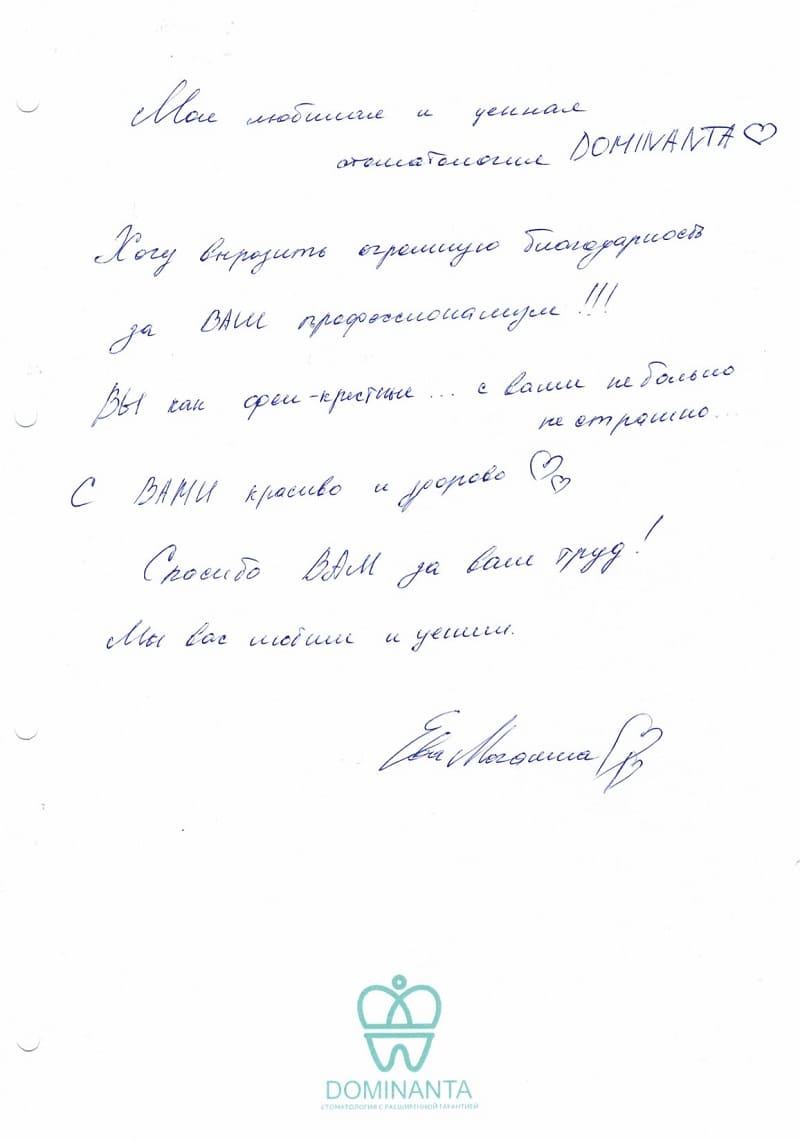 Моя любимая и ценная
стоматология DOMINANTA
Хочу выразить огромную благодарность
за ВАШ профессионализм!!!
ВЫ как феи-крестные... с вами не больно
не страшно...
С ВАМИ красиво и здорово
Спасибо ВАМ за ваш труд!
Мы вас любим и ценим.
Ева
DOMINANTA
СТОМАТОЛОГИЯ С РАСШИРЕННОЙ ГАРАНТИЕЙ